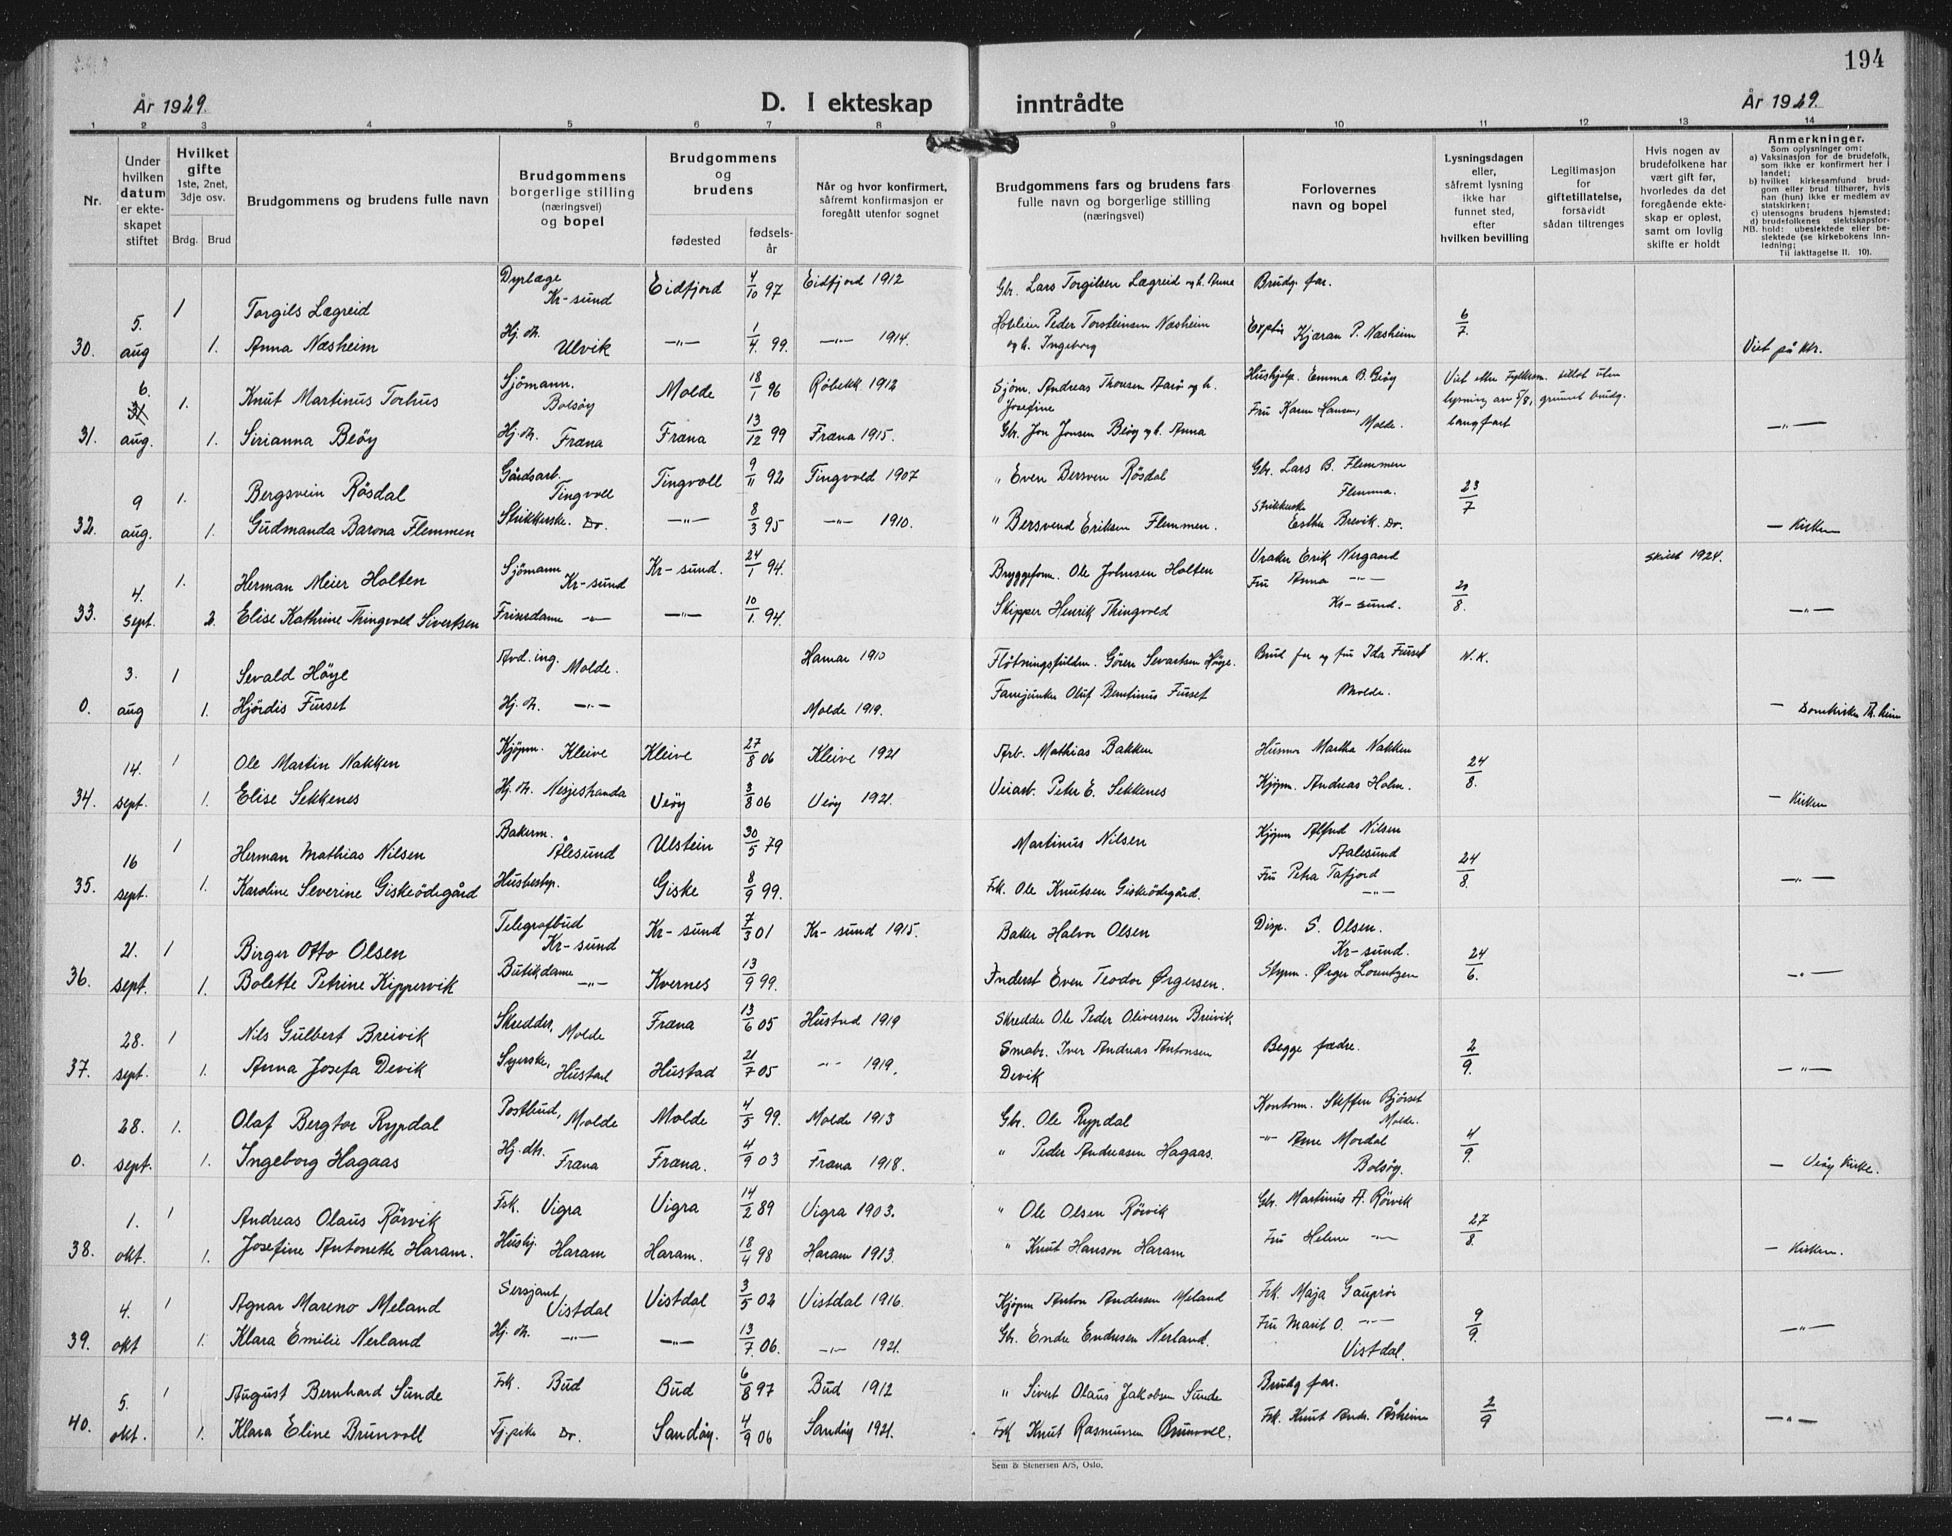 194
År 1929.
D. I ekteskap inntrådte
År 1929.
1 2 3 4 5 6 7 8 9 10 11 12 13 14
Nr.
Under hvilken datum er ekteskapet stiftet
Hvilket gifte 1ste, 2net, 3dje osv.
Brdg. Brud
Brudgommens og brudens fulle navn
Brudgommens borgerlige stilling (næringsvei) og bopel
Brudgommens og brudens
fødested
fødselsår
Når og hvor konfirmert, såfremt konfirmasjon er foregått utenfor sognet
Brudgommens fars og brudens fars fulle navn og borgerlige stilling (næringsvei)
Forlovernes navn og bopel
Lysningsdagen eller, såfremt lysning ikke har funnet sted, efter hvilken bevilling
Legitimasjon for giftetillatelse, forsåvidt sådan tiltrenges
Hvis nogen av brudefolkene har vært gift før, hvorledes da det foregående ekteskap er opløst, samt om lovlig skifte er holdt
Anmerkninger.
Som oplysninger om:
a) Vaksinasjon for de brudefolk, som ikke er konfirmert her i landet;
b) hvilket kirkesamfund brudgom eller brud tilhører, hvis han (hun) ikke er medlem av statskirken;
c) utensogns brudens hjemsted;
d) brudefolkenes slektskapsforhold: ubeslektede eller beslektede (se kirkebokens innledning;
NB. Til iakttagelse II. 10).
5. 1 Torgils Lægreid Dyrlæge Kr-sund Eidfjord 4/10 97 Eidfjord 1912 Gbr. Lars Torgilsen Lægreid og h. Anna Brudg. far. 6/7
30. aug 1. Anna Næsheim Hj. dt. Ulvik —"— 1/4. 99. —"— 1914. Peder Torsteinsen Næsheim og h. Ingeborg Kjæran P. Næsheim Viet på ktr.
6. 31 1. Knut Martinus Torhus Sjömann. Bolsöy Molde 18/1 96 Røbekk 1912 Sjöm. Andreas Thousen Aarö og h. Josefine Hushjelp. Emma B. Beöy Viet efter Fylkesm. tillat uten
31. aug. 1. Sirianna Beöy Hj. dt. Fræna Fræna 13/12 99 Fræna 1915. Gbr. Jon Jonsen Beöy og h. Anna Fru Karen Hansen, Molde. lysning av 5/8, grunnet brudg. langfart —"—
9 1. Bergsvein Rösdal Gårdsarb. Tingvoll Tingvoll 9/11 92 Tingvold 1907 " Even Bersven Rösdal Gbr. Lars B. Flemmen Flemma. 23/7
32. aug. 1. Gudmanda Barona Flemmen Strikkerske. Do. —"— 8/3 95 —"— 1910. " Bersvend Eriksen Flemmen. Strikkerske Esther Brevik. Do. — Kirken
4. 1. Herman Meier Holten Sjömann Kr-sund Kr-sund. 24/1 94. Bryggeform. Ole Johnsen Holten Vraker Erik Nergaard skilt 1924.
33. sept. 2. Elise Kathrine Thingvold Sivertsen Frisørdame —"— —"— 10/1. 94. Skipper Henrik Thingvold Fru Anna —"— Kr-sund. 20/8. —"—
3. 1 Sevald Höye Avd. ing. Molde. Hamar 1910 Fløtningsfuldm. Gören Sevartsen Höye. Brud far og fru Ida Furset N. K.
0. aug 1. Hjördis Furset Hj. dt. —"— Molde 1919. Fanejunker Oluf Berntinus Furset Molde. — Domkirken Th. heim
14. 1 Ole Martin Nakken Kjöpm. Kleive Kleive 27/8 06 Kleive 1921 Arb. Mathias Bakken Husmor Martha Nakken 24/8.
34. sept. 1. Elise Sekkenes Hj. dt. Nesjestranda Veöy 3/8 06 Veöy 1921. Veiarb. Peter E. Sekkenes Kjöpm. Andreas Holm. — Kirken
16 1 Herman Mathias Nilsen Bakerm. Ålesund Ulstein 30/5 79 Martinus Nilsen Kjöpm Alfred Nilsen Aalesund 24/8.
35. sept. 1. Karoline Severine Giskeödegård Husbestyr. Giske 8/9 99. Fsk. Ole Knutsen Giskeödegård. Fru Petra Tafjord —"— —"—
21. 1 Birger Otto Olsen Telegrafbud Kr-sund Kr-sund 7/3 01 Kr-sund 1915. Baker Halvor Olsen Disp. S. Olsen. Kr-sund. 24/6.
36. sept. 1. Bolette Petrine Kippervik Butikdame —"— Kvernes 13/9 99. Inderst Even Teodor Ørgersen. Styrm. Ørger Lorentzen —"—
28. 1 Nils Gulbert Breivik Skredder, Molde Fræna 13/6 05 Hustad 1919 Skredder Ole Peder Oliversen Breivik Begge fædre. 2/9.
37. sept. 1. Anna Josefa Devik Syerske, Hustad Hustad 21/7 05 —"— 1919. Småbr. Iver Andreas Antonsen Devik —"—
28. 1. Olaf Bergtor Rypdal Postbud, Molde Molde 4/5 99. Molde 1913 Gbr. Ole Rypdal Kontorm. Steffen Bjørset Molde. 4/9.
0. sept. 1. Ingeborg Hagaas Hj. dtr. Fræna Fræna. 4/9 03 Fræna 1918. " Peder Andreasen Hagaas. —"— Arne Mordal Bolsöy. — Veöy Kirke.
1. 1 Andreas Olaus Rörvik Fsk. Vigra Vigra 14/2 89 Vigra 1903. " Ole Olsen Röivik Gbr. Martinus A. Röivik 27/8.
38. okt. 1. Josefine Antonette Haram. Hushj. Haram Haram. 18/4 98 Haram 1913. " Knut Hanson Haram Fru Helene —"— — Kirken.
4. 1 Agnar Mareno Meland Sersjant Vistdal Vistdal 3/5 02 Vistdal 1916. Kjöpm Anton Andersen Meland Fsk. Maja Gauprör 9/9.
39. okt 1. Klara Emilie Nerland Hj. dt. —"— —"— 13/7. 06. —"— 1921. Gbr. Endre Endresen Nerland. Fru Marit O. —"— Vistdal. —"—
5. 1 August Bernhard Sunde Fsk. Bud Bud 6/8 97 Bud 1912 " Sivert Olaus Jakobsen Sunde Brudg far. 2/9
40. okt. 1. Klara Eline Brunvoll Tj. pike Do. Sandöy. 4/9 06 Sandöy 1921. Fsk Knut Rasmussen Brunvoll. Fsk. Knut Andr. Åsheim —"—
Sem & Stenersen A/S, Oslo.